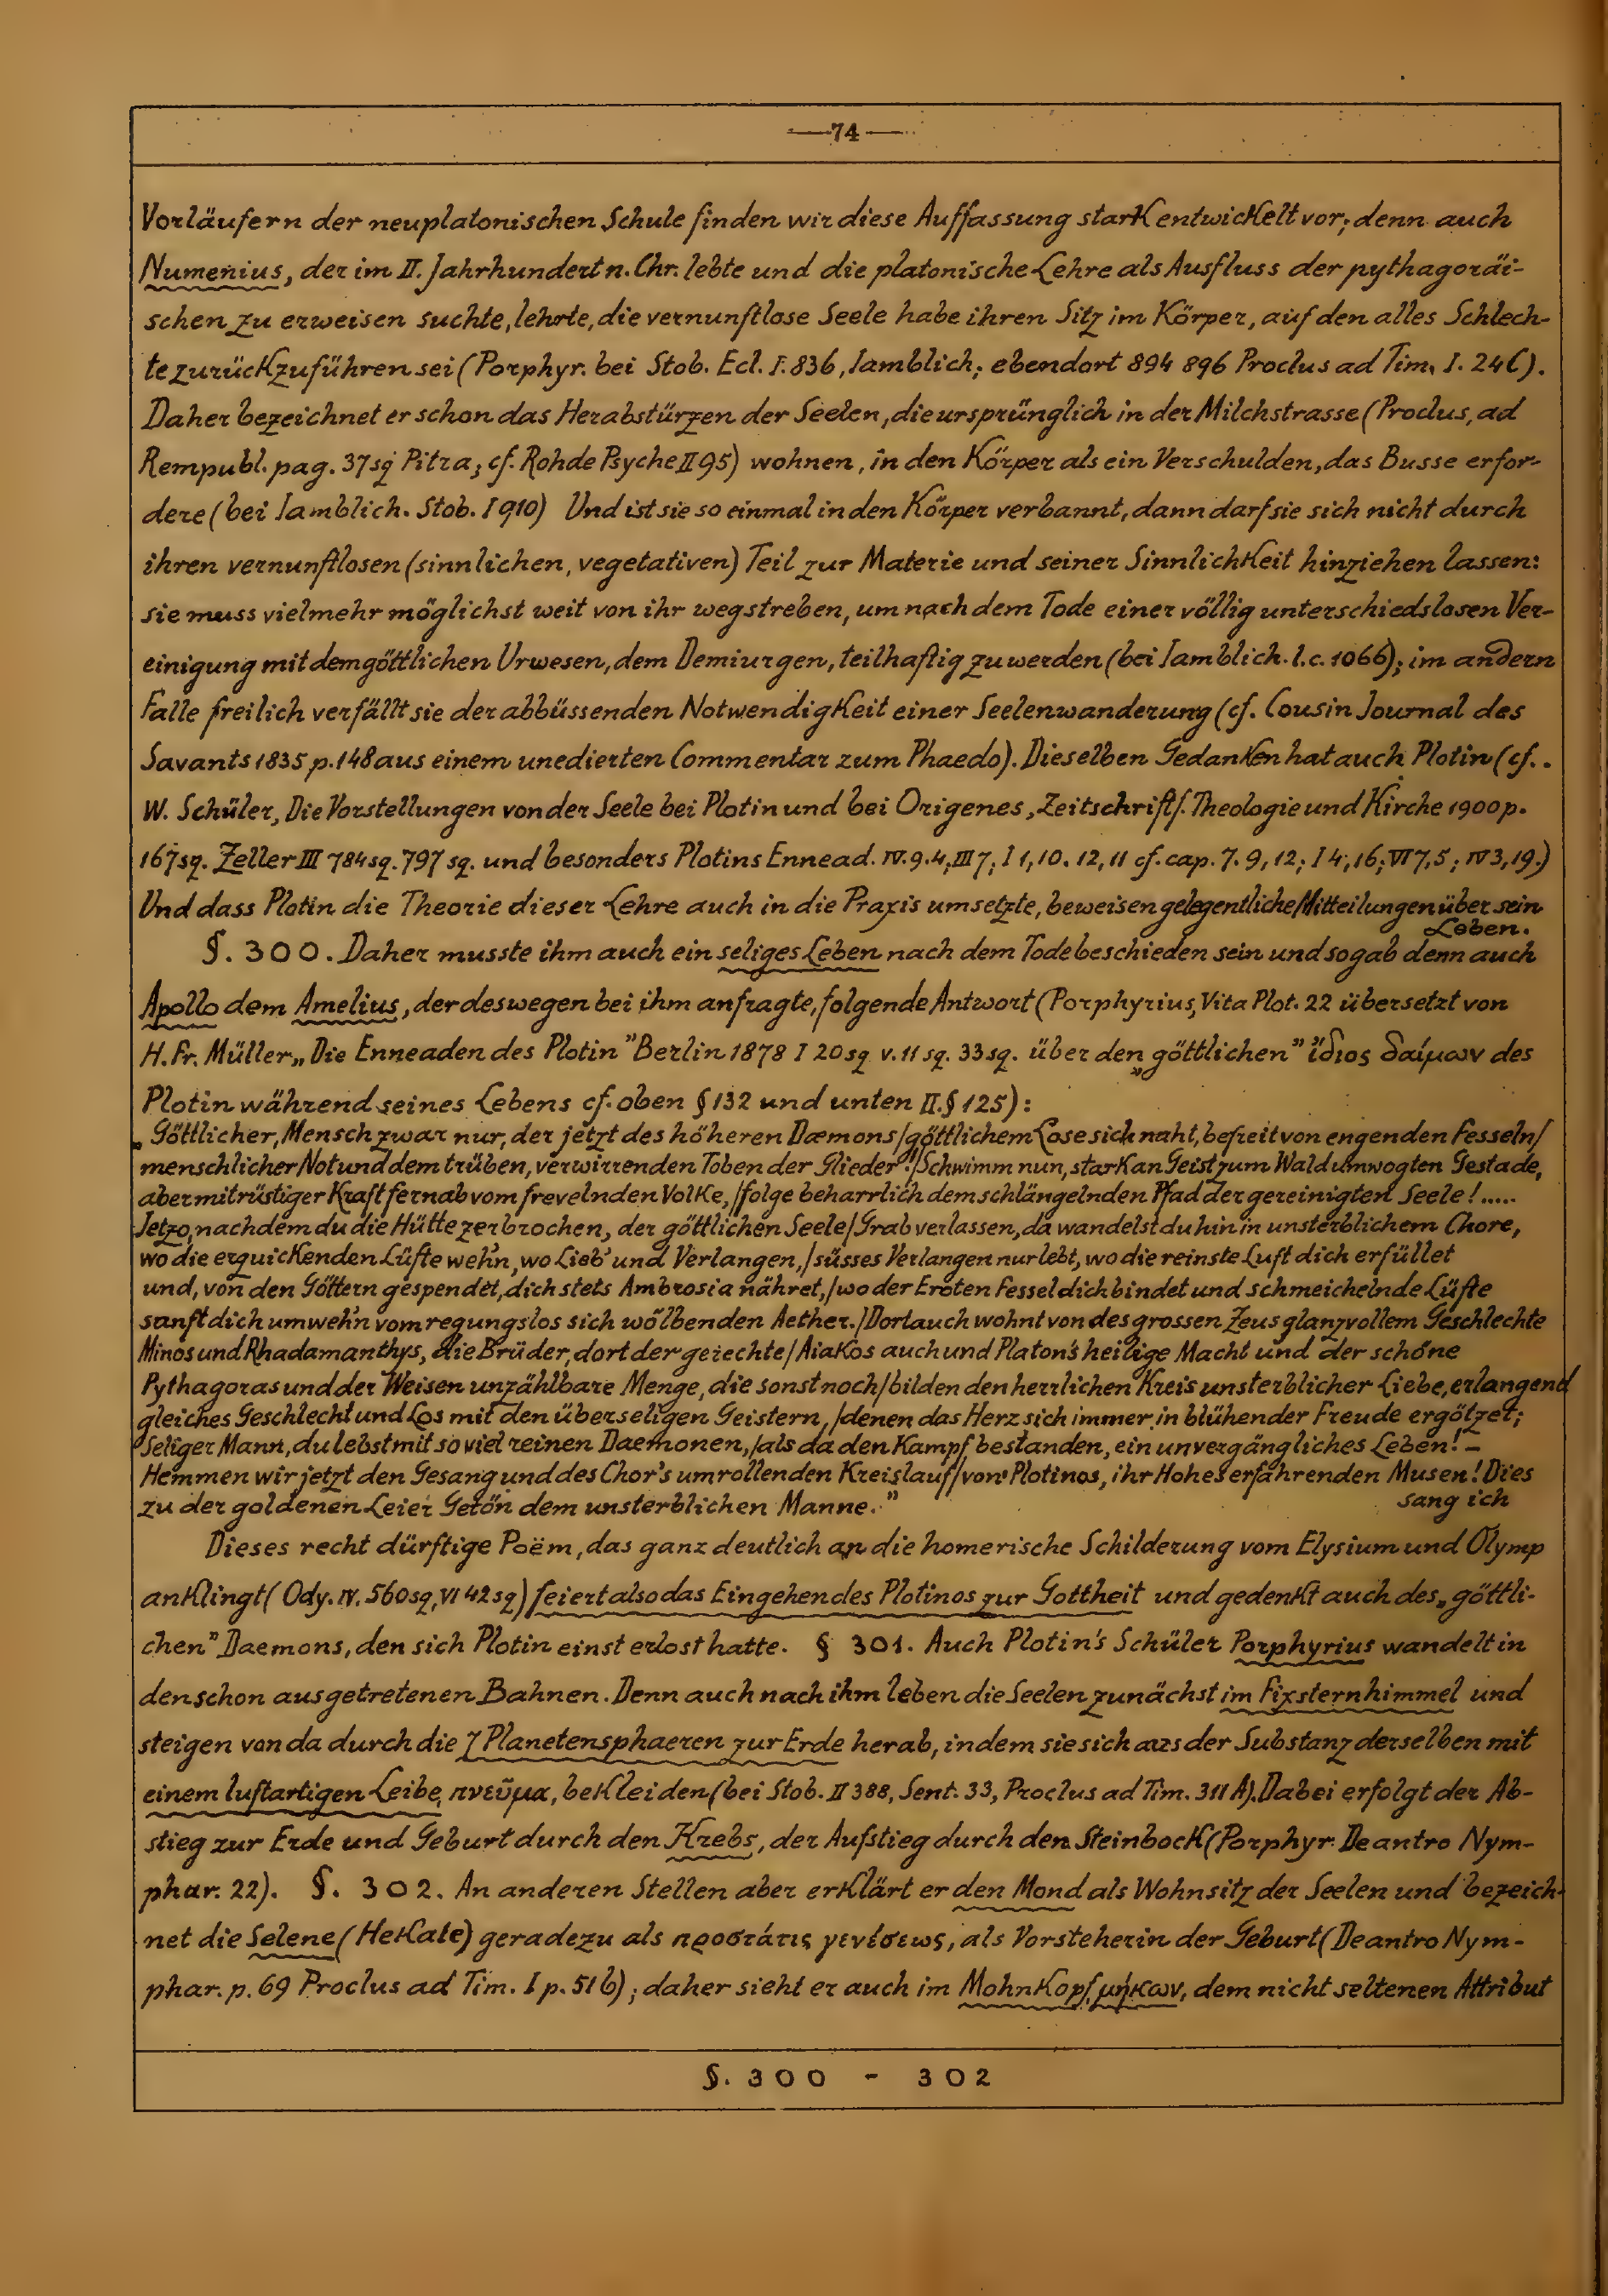 —74—
Vorläufern der neuplatonischen Schule finden wir diese Auffassung stark entwickelt vor; denn auch
Numenius, der im II. Jahrhundert n. Chr. lebte und die platonische Lehre als Ausfluss der pythagoräi-
schen zu erweisen suchte, lehrte, die vernunftlose Seele habe ihren Sitz im Körper, auf den alles Schlech-
te zurückzuführen sei (Porphyr. bei Stob. Ecl. I. 836, Iamblich; ebendort 894 896 Proclus ad Tim. I. 24 C).
Daher bezeichnet er schon das Herabstürzen der Seelen, die ursprünglich in der Milchstrasse (Proclus, ad
Rempubl. pag. 37 sq Pitra; cf. Rohde Psyche II 95) wohnen, in den Körper als ein Verschulden, das Busse erfor-
dere (bei Iamblich. Stob. I 910) Und ist sie so einmal in den Körper verbannt, dann darf sie sich nicht durch
ihren vernunftlosen (sinnlichen, vegetativen) Teil zur Materie und seiner Sinnlichkeit hinziehen lassen:
sie muss vielmehr möglichst weit von ihr wegstreben, um nach dem Tode einer völlig unterschiedslosen Ver-
einigung mit dem göttlichen Urwesen, dem Demiurgen, teilhaftig zu werden (bei Iamblich. l.c. 1066); im andern
Falle freilich verfällt sie der abbüssenden Notwendigkeit einer Seelenwanderung (cf. Cousin Journal des
Savants 1835 p. 148 aus einem unedierten Commentar zum Phaedo). Dieselben Gedanken hat auch Plotin (cf..
W. Schüler, Die Vorstellungen von der Seele bei Plotin und bei Origenes, Zeitschrift f. Theologie und Kirche 1900 p.
167 sq. Zeller III 784 sq. 797 sq. und besonders Plotins Ennead. IV. 9. 4; III 7; I 1, 10. 12, 11 cf. cap. 7. 9, 12; I 4, 16; VI 7, 5; IV 3, 19.)
Und dass Plotin die Theorie dieser Lehre auch in die Praxis umsetzte, beweisen gelegentliche Mitteilungen über sein
Leben.
§. 300. Daher musste ihm auch ein seliges Leben nach dem Tode beschieden sein und so gab denn auch
Apollo dem Amelius, der deswegen bei ihm anfragte, folgende Antwort (Porphyrius, Vita Plot. 22 übersetzt von
H. Fr. Müller „Die Enneaden des Plotin" Berlin 1878 I 20 sq v. 11 sq. 33 sq. über den „göttlichen" ἴδιος δαίμων des
Plotin während seines Lebens cf. oben § 132 und unten II. § 125):
„Göttlicher, Mensch zwar nur, der jetzt des höheren Dæmons / göttlichem Lose sich naht, befreit von engenden Fesseln /
menschlicher Not und dem trüben, verwirrenden Toben der Glieder! / Schwimm nun, stark an Geist zum Wald umwogten Gestade,
aber mit rüstiger Kraft fernab vom frevelnden Volke, / folge beharrlich dem schlängelnden Pfad der gereinigten Seele! .....
Jetzo, nachdem du die Hütte zerbrochen, der göttlichen Seele / Grab verlassen, da wandelst du hin in unsterblichem Chore,
wo die erquickenden Lüfte weh'n, wo Lieb' und Verlangen, / süsses Verlangen nur lebt, wo die reinste Luft dich erfüllet
und, von den Göttern gespendet, dich stets Ambrosia nähret, / wo der Eroten Fessel dich bindet und schmeichelnde Lüfte
sanft dich umweh'n vom regungslos sich wölbenden Aether. / Dort auch wohnt von des grossen Zeus glanzvollem Geschlechte
Minos und Rhadamanthys, die Brüder, dort der gerechte / Aiakos auch und Platon's heilige Macht und der schöne
Pythagoras und der Weisen unzählbare Menge, die sonst noch / bilden den herrlichen Kreis unsterblicher Liebe, erlangend
gleiches Geschlecht und Los mit den überseligen Geistern, / denen das Herz sich immer in blühender Freude ergötzet;
Seliger Mann, du lebst mit so viel reinen Daemonen, / als da den Kampf bestanden, ein unvergängliches Leben! —
Hemmen wir jetzt den Gesang und des Chor's umrollenden Kreislauf / von Plotinos, ihr Hohes erfahrenden Musen! Dies
sang ich
zu der goldenen Leier Getön dem unsterblichen Manne."
Dieses recht dürftige Poëm, das ganz deutlich an die homerische Schilderung vom Elysium und Olymp
anklingt (Ody. IV. 560 sq, VI 42 sq) feiert also das Eingehen des Plotinos zur Gottheit und gedenkt auch des „göttli-
chen" Daemons, den sich Plotin einst erlost hatte. § 301. Auch Plotin's Schüler Porphyrius wandelt in
den schon ausgetretenen Bahnen. Denn auch nach ihm leben die Seelen zunächst im Fixsternhimmel und
steigen von da durch die 7 Planetensphaeren zur Erde herab, indem sie sich aus der Substanz derselben mit
einem luftartigen Leibe, πνεῦμα, bekleiden (bei Stob. II 388, Sent. 33, Proclus ad Tim. 311 A). Dabei erfolgt der Ab-
stieg zur Erde und Geburt durch den Krebs, der Aufstieg durch den Steinbock (Porphyr. De antro Nym-
phar. 22). §. 302. An anderen Stellen aber erklärt er den Mond als Wohnsitz der Seelen und bezeich-
net die Selene (Hekate) geradezu als προστάτις γενέσεως, als Vorsteherin der Geburt (De antro Nym-
phar. p. 69 Proclus ad Tim. I p. 51 b); daher sieht er auch im Mohnkopf, μήκων, dem nicht seltenen Attribut
§. 300 - 302